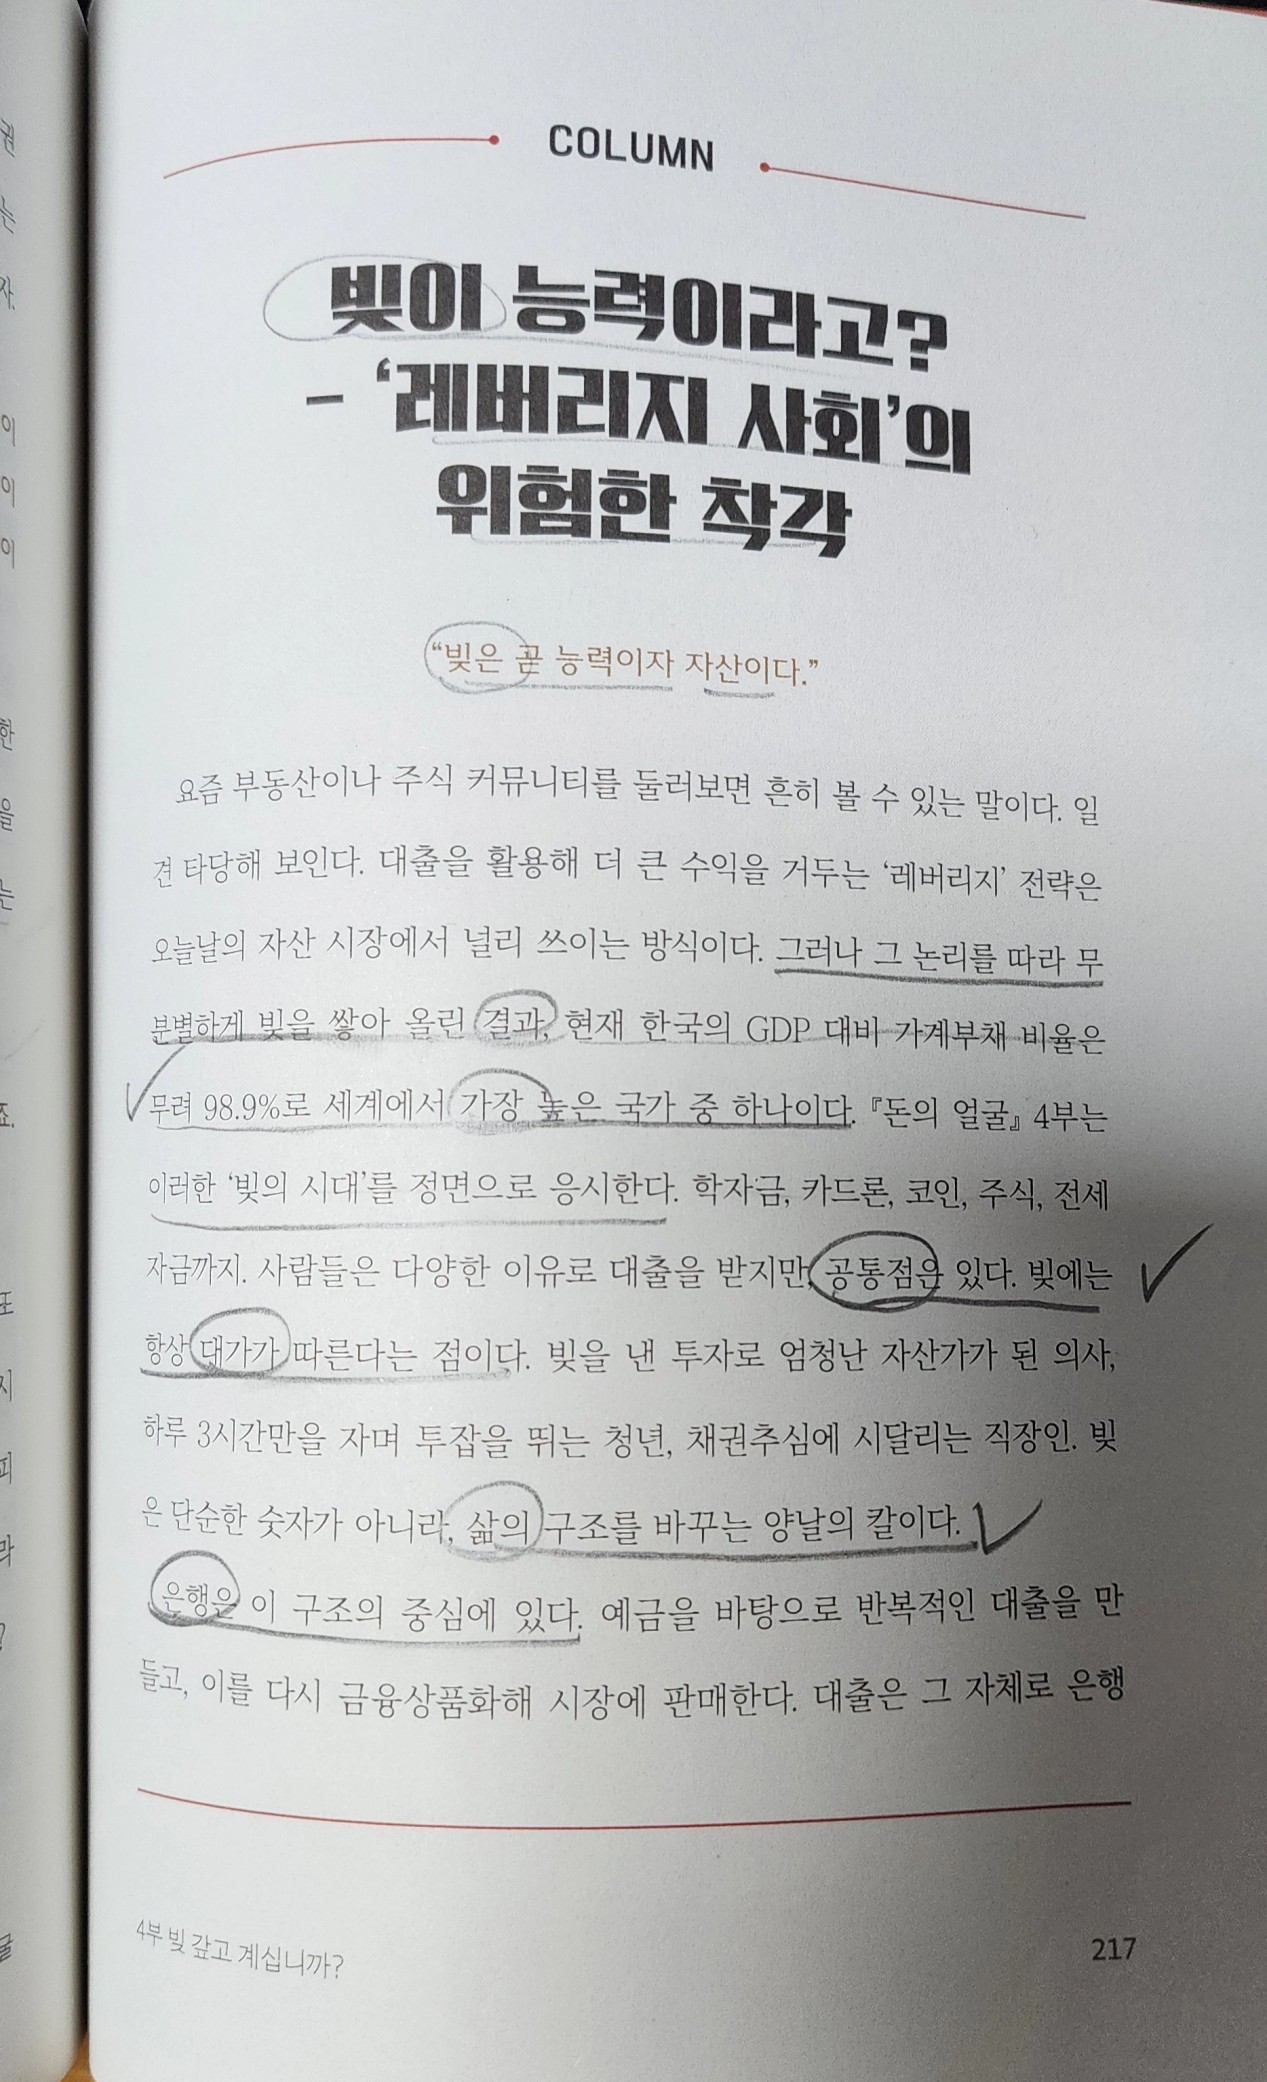 COLUMN
빚이 능력이라고?
- ‘레버리지 사회’의
위험한 착각
“빚은 곧 능력이자 자산이다.”
요즘 부동산이나 주식 커뮤니티를 둘러보면 흔히 볼 수 있는 말이다. 일
견 타당해 보인다. 대출을 활용해 더 큰 수익을 거두는 ‘레버리지’ 전략은
오늘날의 자산 시장에서 널리 쓰이는 방식이다. 그러나 그 논리를 따라 무
분별하게 빚을 쌓아 올린 결과, 현재 한국의 GDP 대비 가계부채 비율은
무려 98.9%로 세계에서 가장 높은 국가 중 하나이다. 『돈의 얼굴』 4부는
이러한 ‘빚의 시대’를 정면으로 응시한다. 학자금, 카드론, 코인, 주식, 전세
자금까지. 사람들은 다양한 이유로 대출을 받지만, 공통점은 있다. 빚에는
항상 대가가 따른다는 점이다. 빚을 낸 투자로 엄청난 자산가가 된 의사,
하루 3시간만을 자며 투잡을 뛰는 청년, 채권추심에 시달리는 직장인. 빚
은 단순한 숫자가 아니라, 삶의 구조를 바꾸는 양날의 칼이다.
은행은 이 구조의 중심에 있다. 예금을 바탕으로 반복적인 대출을 만
들고, 이를 다시 금융상품화해 시장에 판매한다. 대출은 그 자체로 은행
4부 빚 갚고 계십니까?
217